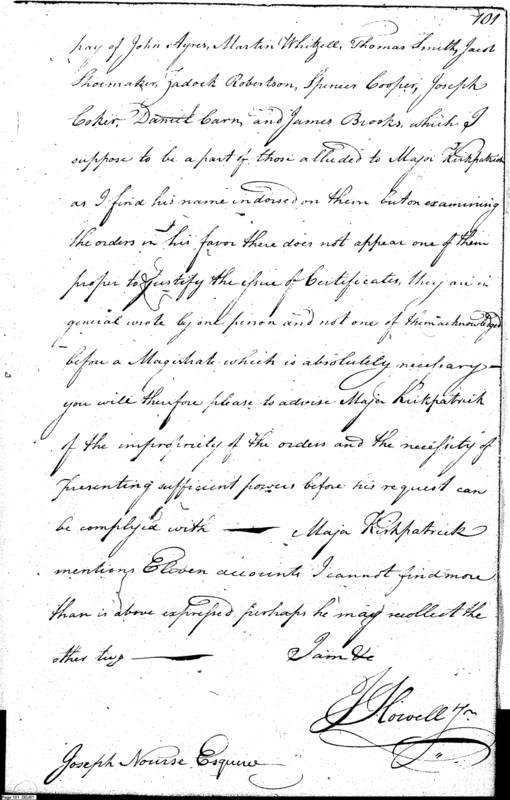 101
pay of John Ayres, Martin Whitzell, Thomas Smith, Jacob
Shoemaker, Zadock Robertson, Spencer Cooper, Joseph
Coker, Daniel Carn, and James Brooks, which I
suppose to be a part of those alluded to Major Kirkpatrick
as I find his name indorsed on them but on examining
the orders in his favor there does not appear one of them
proper to justify the issue of Certificates, they are in
general wrote by one person and not one of them acknowledged
before a Magistrate which is absolutely necessary—
you will therefore please to advise Major Kirkpatrick
of the impropriety of the orders and the necessity of
presenting sufficient powers before his request can
be complyed with — Major Kirkpatrick
mentions Eleven accounts I cannot find more
than is above expressed perhaps he may recollect the
other two — I am &c
J Howell Jr
Joseph Nourse Esquire